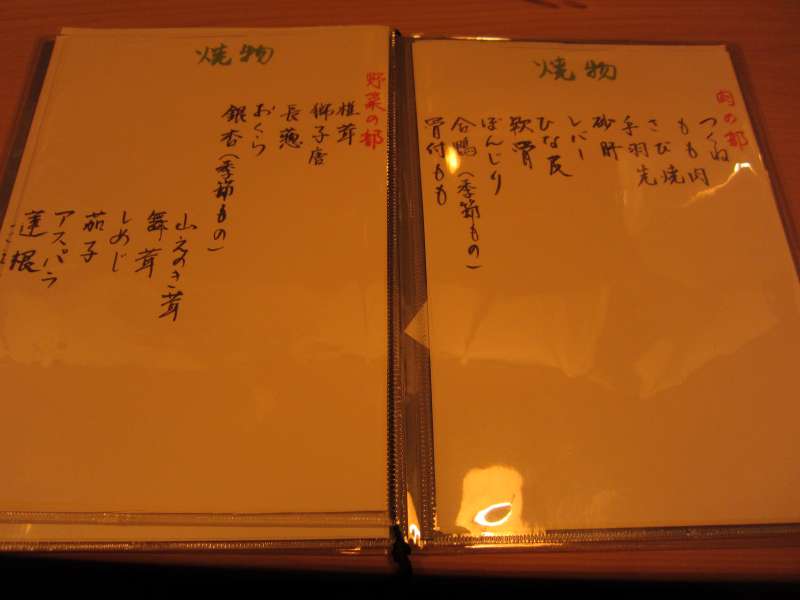 焼物
肉の部
つくね
もも肉
さび焼
手羽先
砂肝
レバー
ひな皮
軟骨
ぼんじり
合鴨(季節もの)
骨付もも
焼物
野菜の部
椎茸
獅子唐
長葱
おくら
銀杏(季節もの)
山えのき茸
舞茸
しめじ
茄子
アスパラ
蓮根